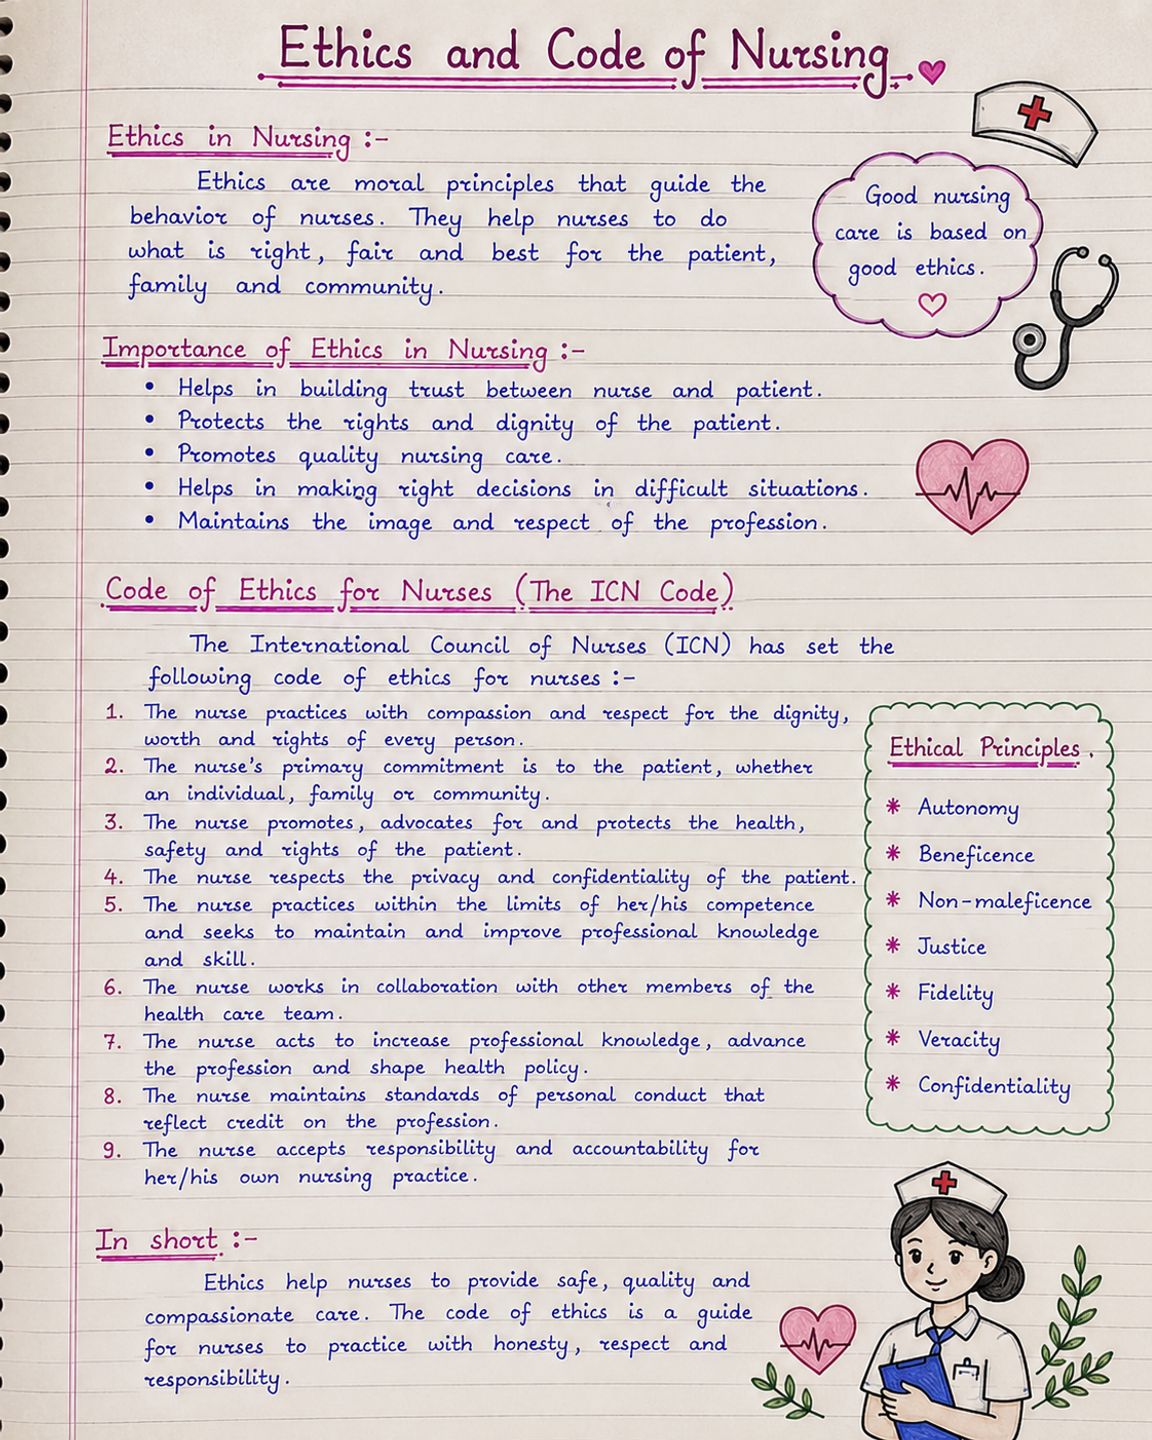 Ethics and Code of Nursing
Ethics in Nursing :-
Ethics are moral principles that guide the
behavior of nurses. They help nurses to do
what is right, fair and best for the patient,
family and community.
Good nursing
care is based on
good ethics.
Importance of Ethics in Nursing :-
• Helps in building trust between nurse and patient.
• Protects the rights and dignity of the patient.
• Promotes quality nursing care.
• Helps in making right decisions in difficult situations.
• Maintains the image and respect of the profession.
Code of Ethics for Nurses (The ICN Code)
The International Council of Nurses (ICN) has set the
following code of ethics for nurses :-
1. The nurse practices with compassion and respect for the dignity,
worth and rights of every person.
2. The nurse's primary commitment is to the patient, whether
an individual, family or community.
3. The nurse promotes, advocates for and protects the health,
safety and rights of the patient.
4. The nurse respects the privacy and confidentiality of the patient.
5. The nurse practices within the limits of her/his competence
and seeks to maintain and improve professional knowledge
and skill.
6. The nurse works in collaboration with other members of the
health care team.
7. The nurse acts to increase professional knowledge, advance
the profession and shape health policy.
8. The nurse maintains standards of personal conduct that
reflect credit on the profession.
9. The nurse accepts responsibility and accountability for
her/his own nursing practice.
Ethical Principles.
* Autonomy
* Beneficence
* Non-maleficence
* Justice
* Fidelity
* Veracity
* Confidentiality
In short :-
Ethics help nurses to provide safe, quality and
compassionate care. The code of ethics is a guide
for nurses to practice with honesty, respect and
responsibility.